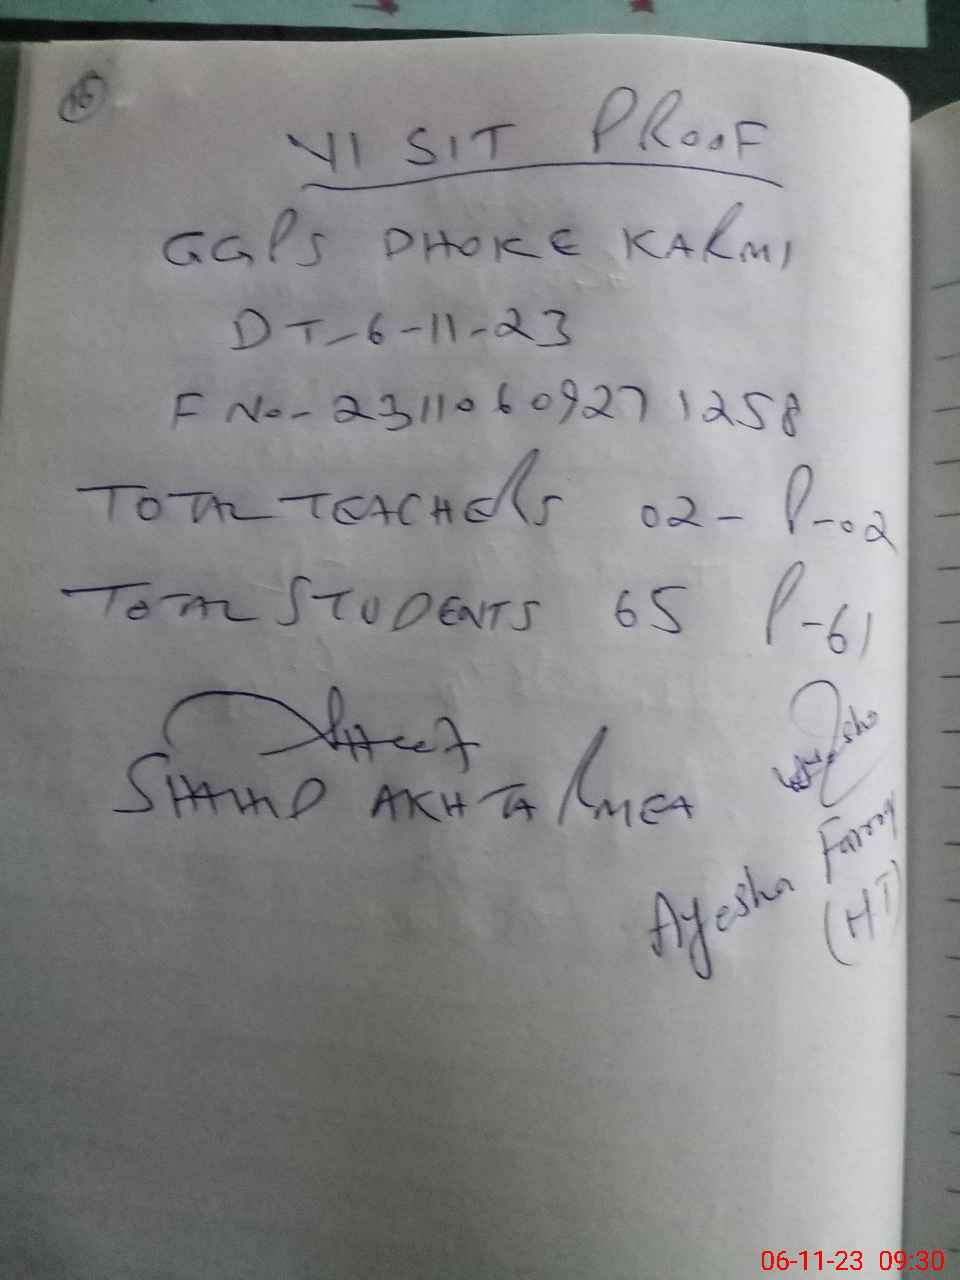 VISIT PROOF
GGPS DHOKE KARMI
DT-6-11-23
F No-23110609271258
TOTAL TEACHERS 02- P-02
TOTAL STUDENTS 65 P-61
SHAHID AKHTAR MEA
Ayesha
(HT)
06-11-23 09:30